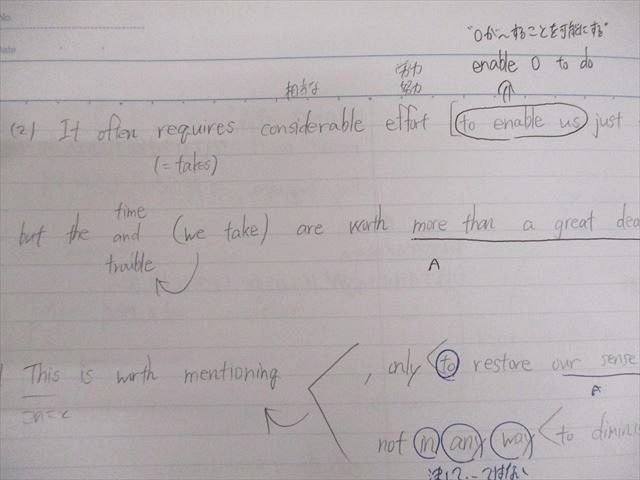 No.
Date
"Oが〜することを可能にする"
enable O to do
相当な
労力
努力
(2) It often requires considerable effort [to enable us just
(= takes)
time
but the and (we take) are worth more than a great dea
trouble
A
This is worth mentioning
, only <to restore our sense
A
not in any way <to dimini
決して…ではない